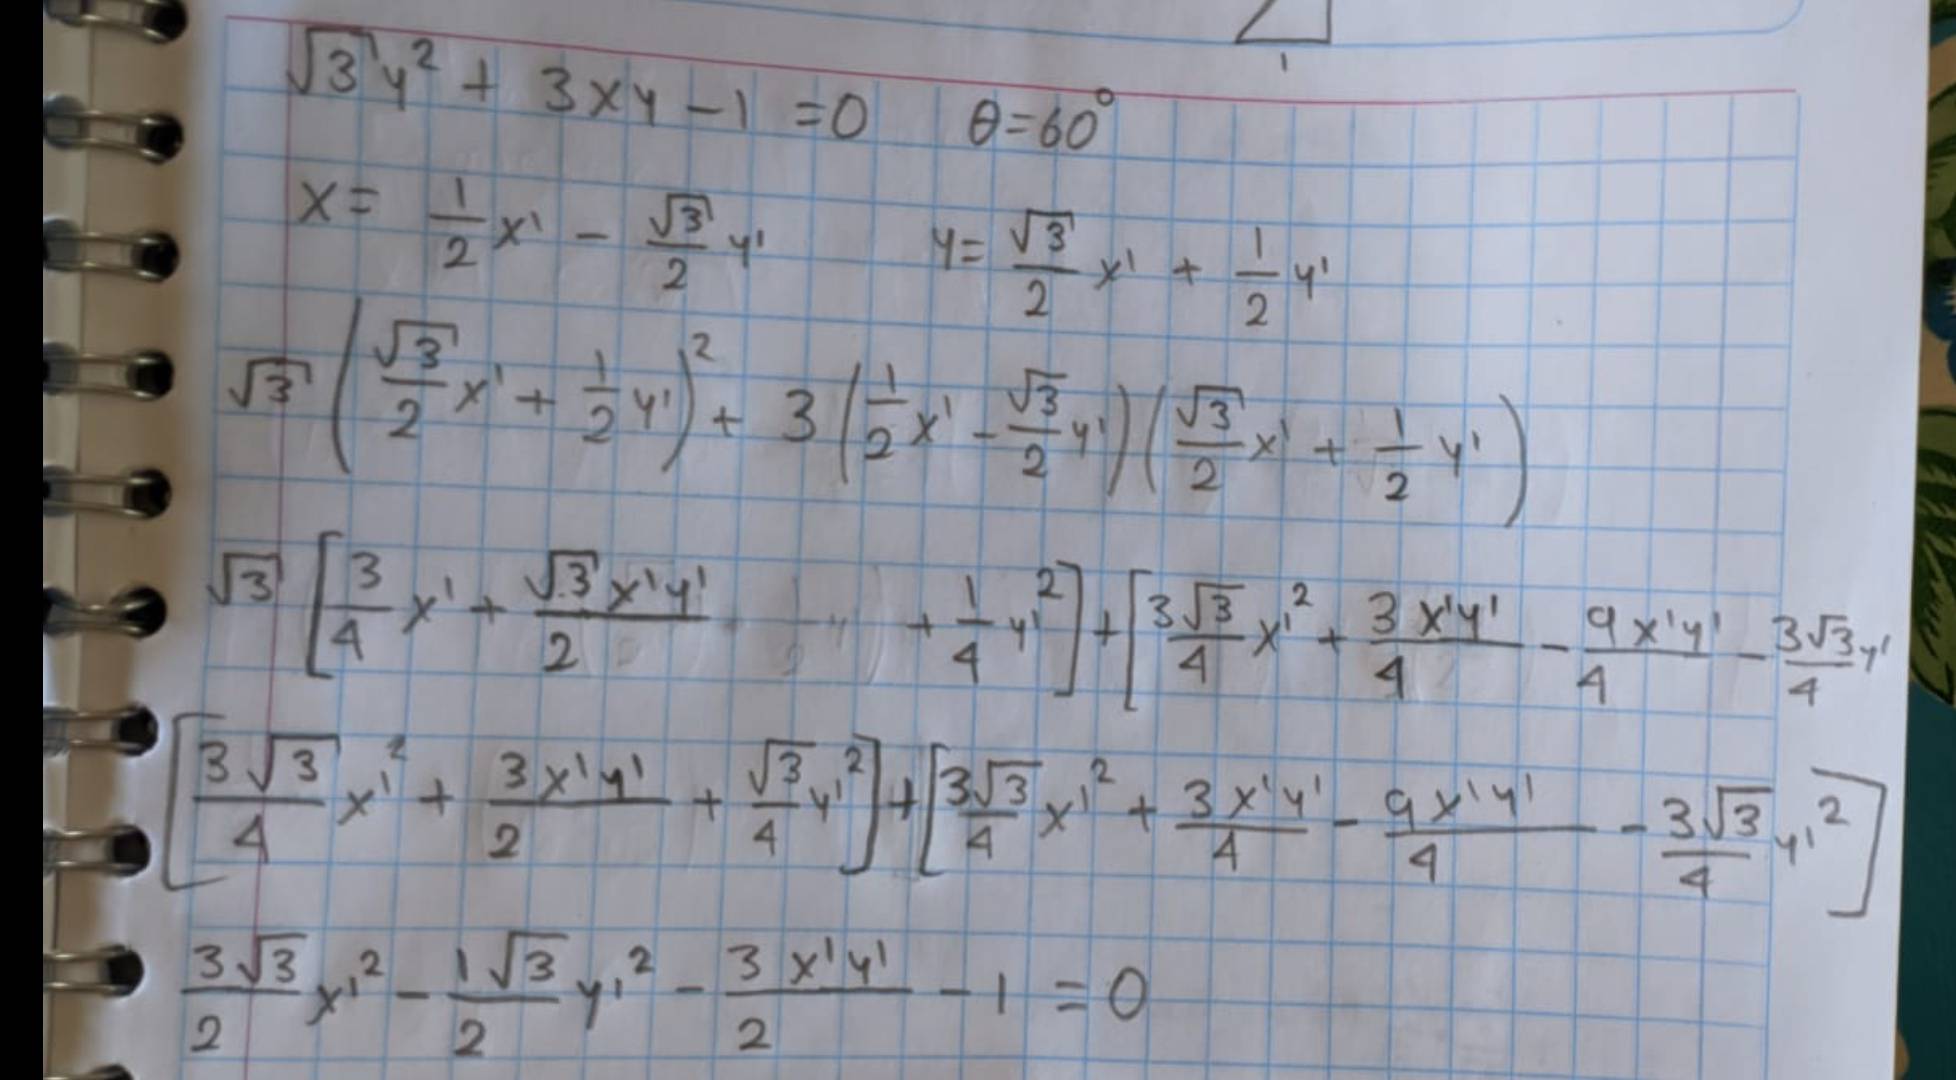 1
√3 y² + 3xy - 1 = 0 θ = 60°
x = 1/2 x' - √3/2 y' y = √3/2 x' + 1/2 y'
√3 (√3/2 x' + 1/2 y')² + 3 (1/2 x' - √3/2 y') (√3/2 x' + 1/2 y')
√3 [3/4 x' + √3 x'y'/2 + 1/4 y'²] + [3√3/4 x'² + 3x'y'/4 - 9x'y'/4 - 3√3/4 y'
[3√3/4 x'² + 3x'y'/2 + √3/4 y'²] + [3√3/4 x'² + 3x'y'/4 - 9x'y'/4 - 3√3/4 y'²]
3√3/2 x'² - 1√3/2 y'² - 3x'y'/2 - 1 = 0